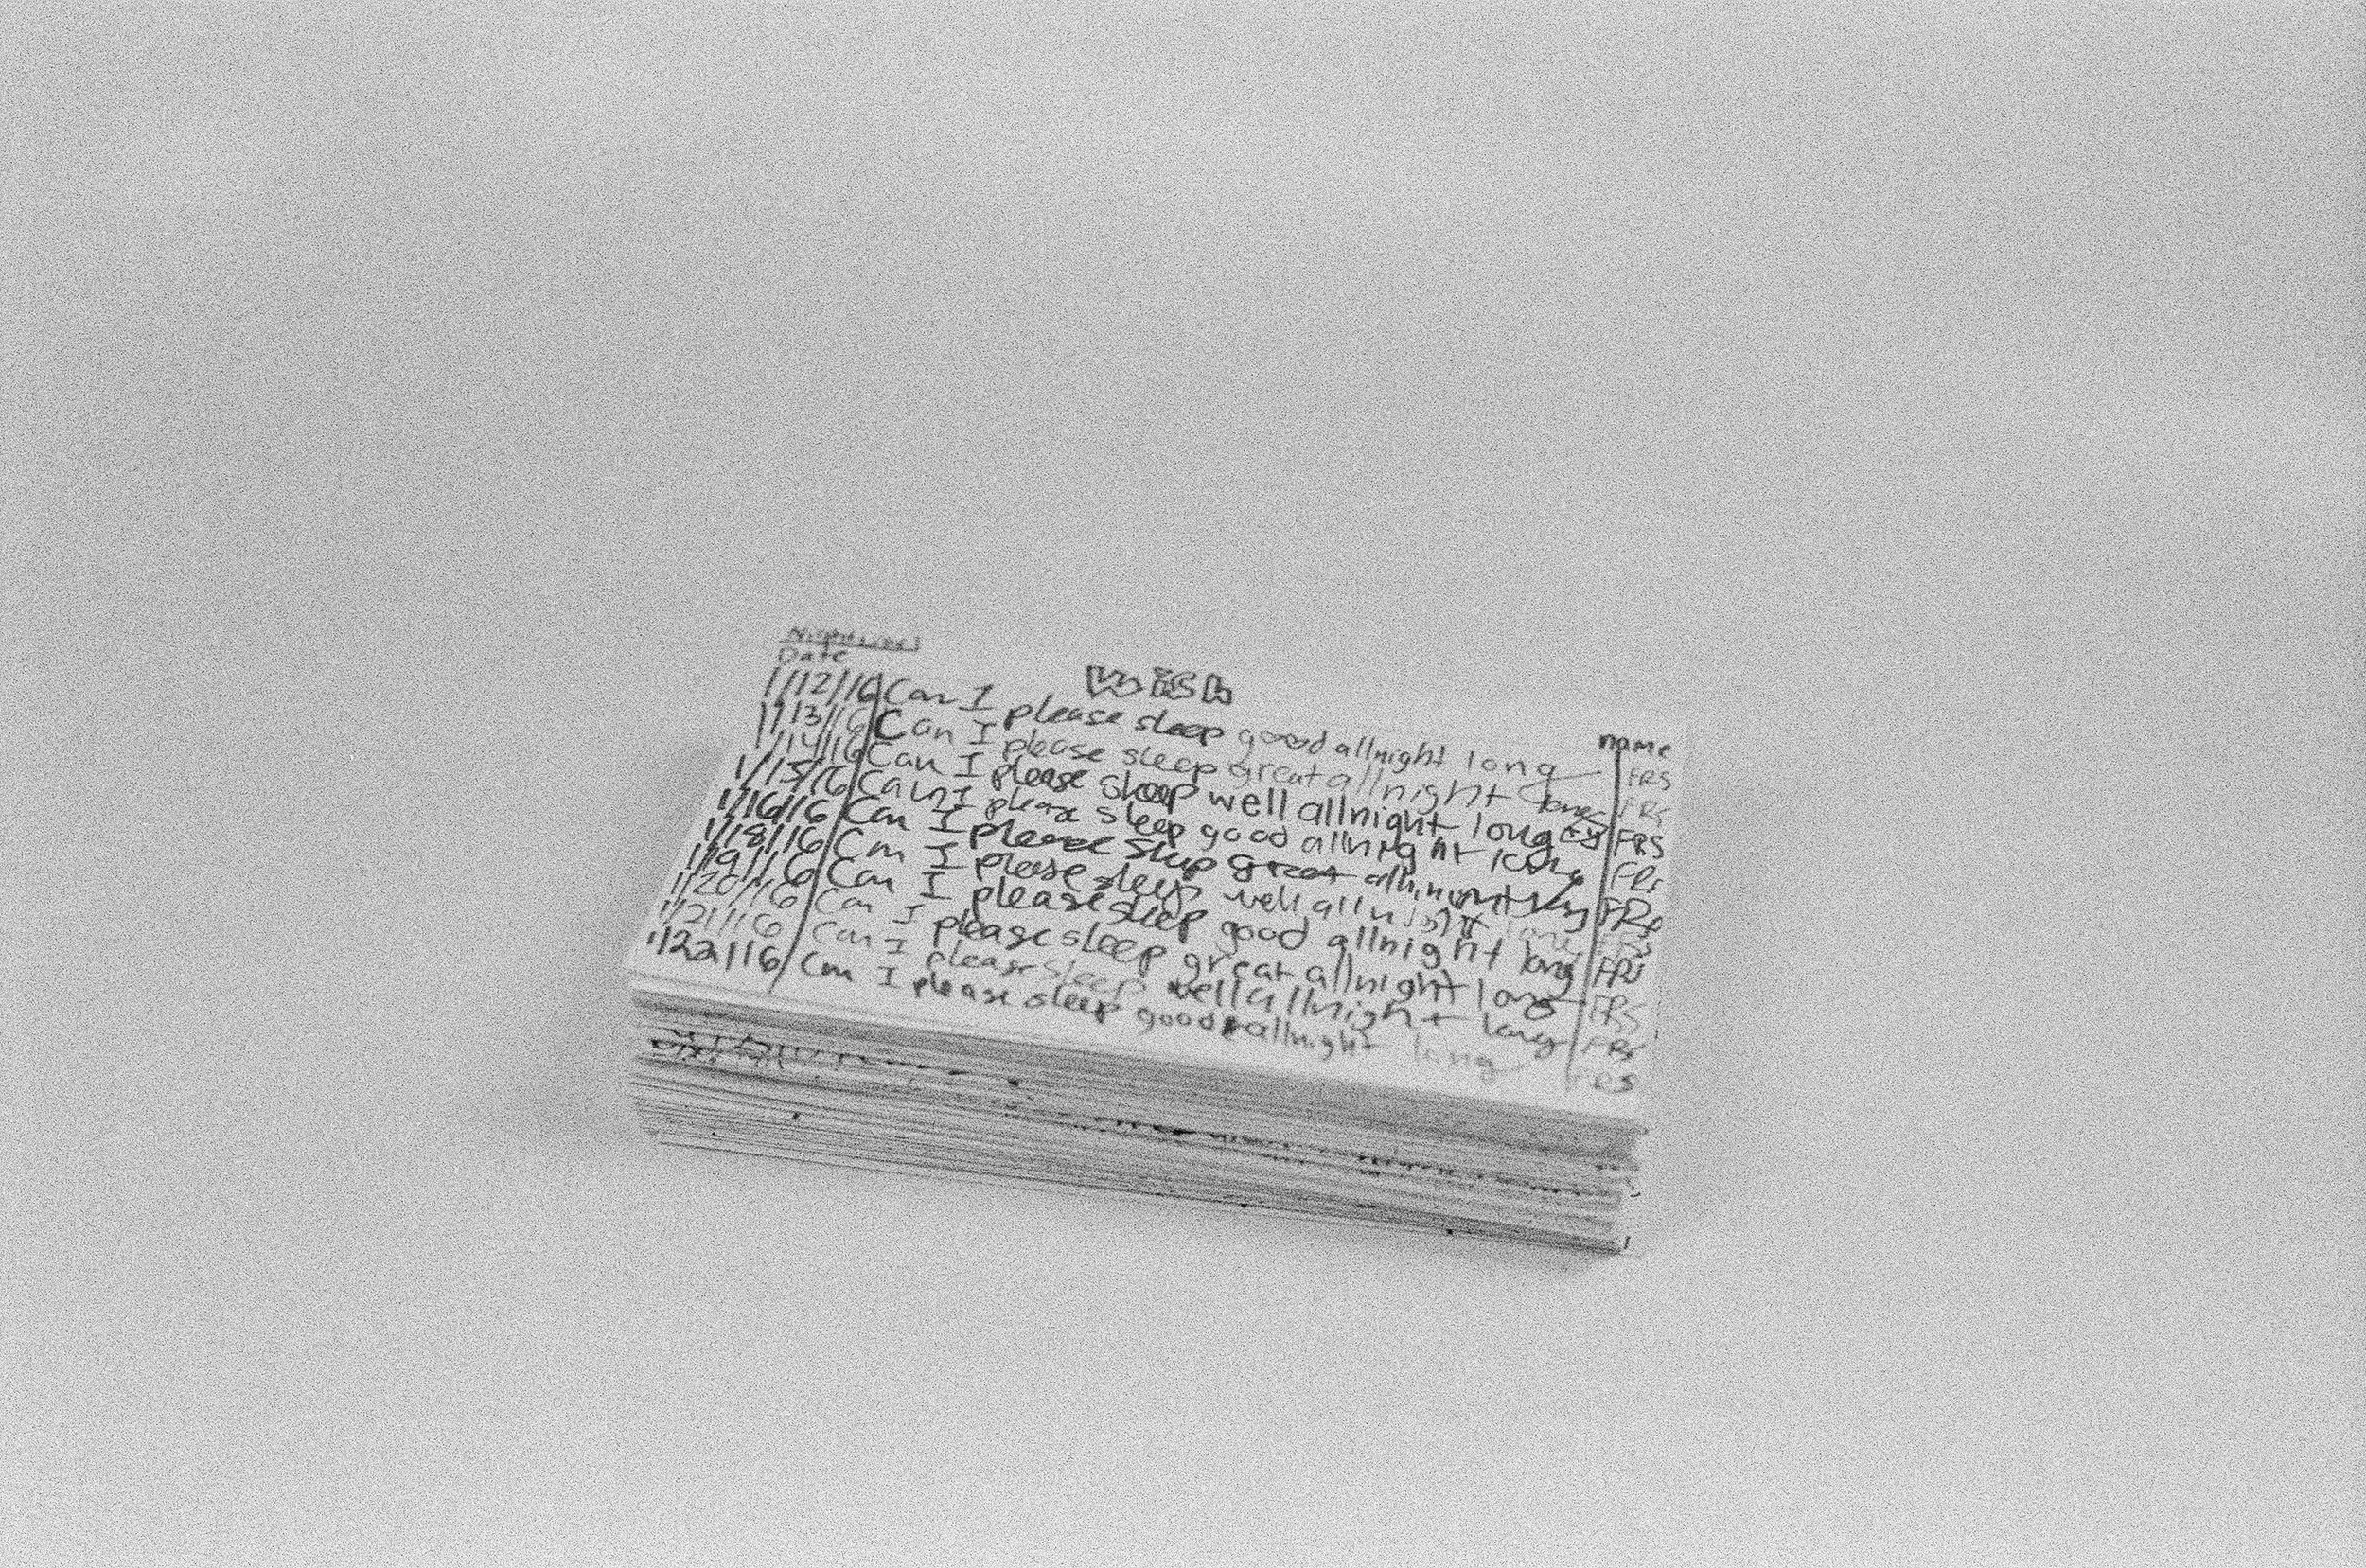 Date Wish name
1/12/16 Can I please sleep good allnight long FRS
1/13/16 Can I please sleep great allnight long FRS
1/14/16 Can I please sleep well allnight long FRS
1/15/16 Can I please sleep good allnight long FRS
1/16/16 Can I please sleep great allnight FRS
1/18/16 Can I please sleep well allnight long FRS
1/19/16 Can I please sleep good allnight long FRS
1/20/16 Can I please sleep great allnight long FRS
1/21/16 Can I please sleep well allnight long FRS
1/22/16 Can I please sleep good allnight long FRS